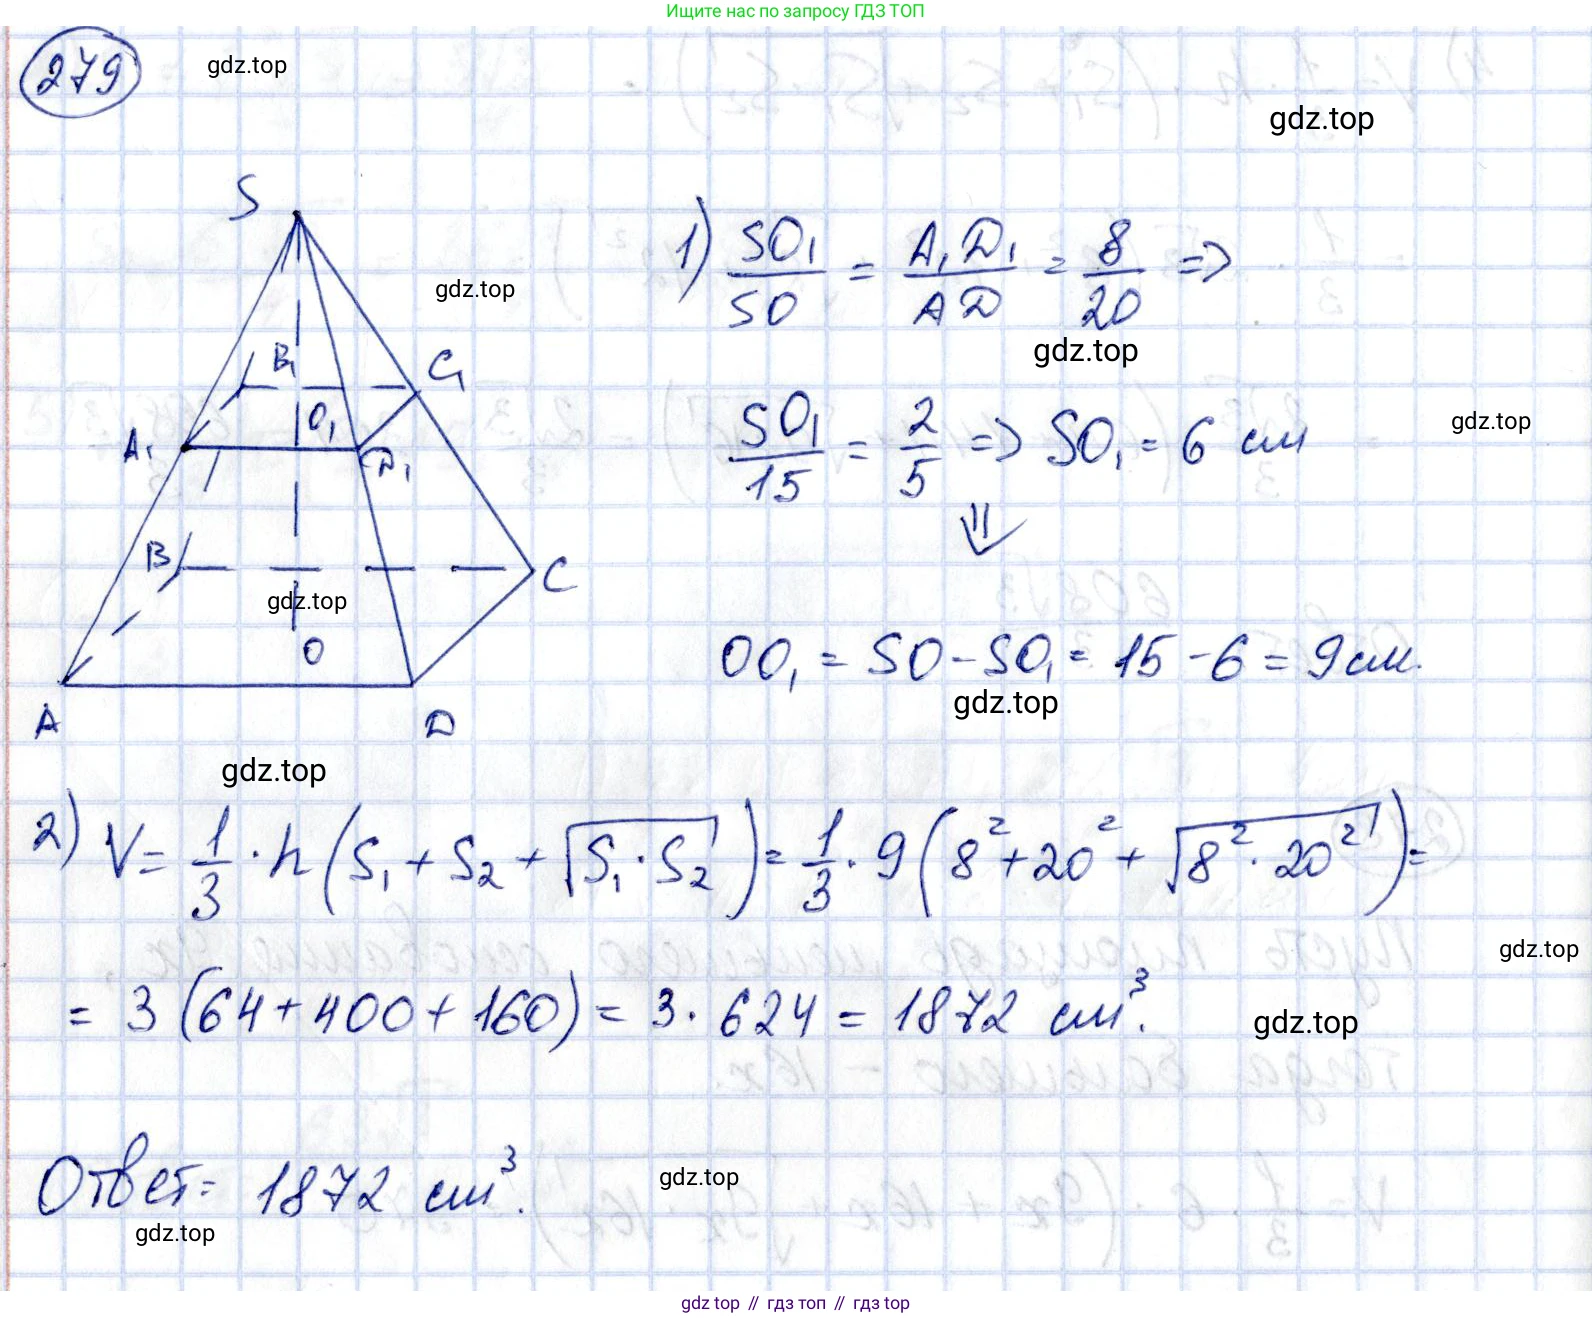 Ищите нас по запросу ГДЗ ТОП
279
gdz.top
gdz.top
S
gdz.top
1) SO₁/SO = A₁D₁/AD = 8/20 =>
gdz.top
B₁
C₁
O₁
A₁
D₁
SO₁/15 = 2/5 => SO₁ = 6 см
gdz.top
⇓
B
C
gdz.top
O
OO₁ = SO - SO₁ = 15 - 6 = 9 см.
gdz.top
A
D
gdz.top
2) V = 1/3 · h (S₁ + S₂ + √(S₁ · S₂)) = 1/3 · 9 (8² + 20² + √(8² · 20²)) =
gdz.top
= 3 (64 + 400 + 160) = 3 · 624 = 1872 см³.
gdz.top
Ответ: 1872 см³.
gdz.top
gdz.top
gdz.top // гдз топ // гдз.top